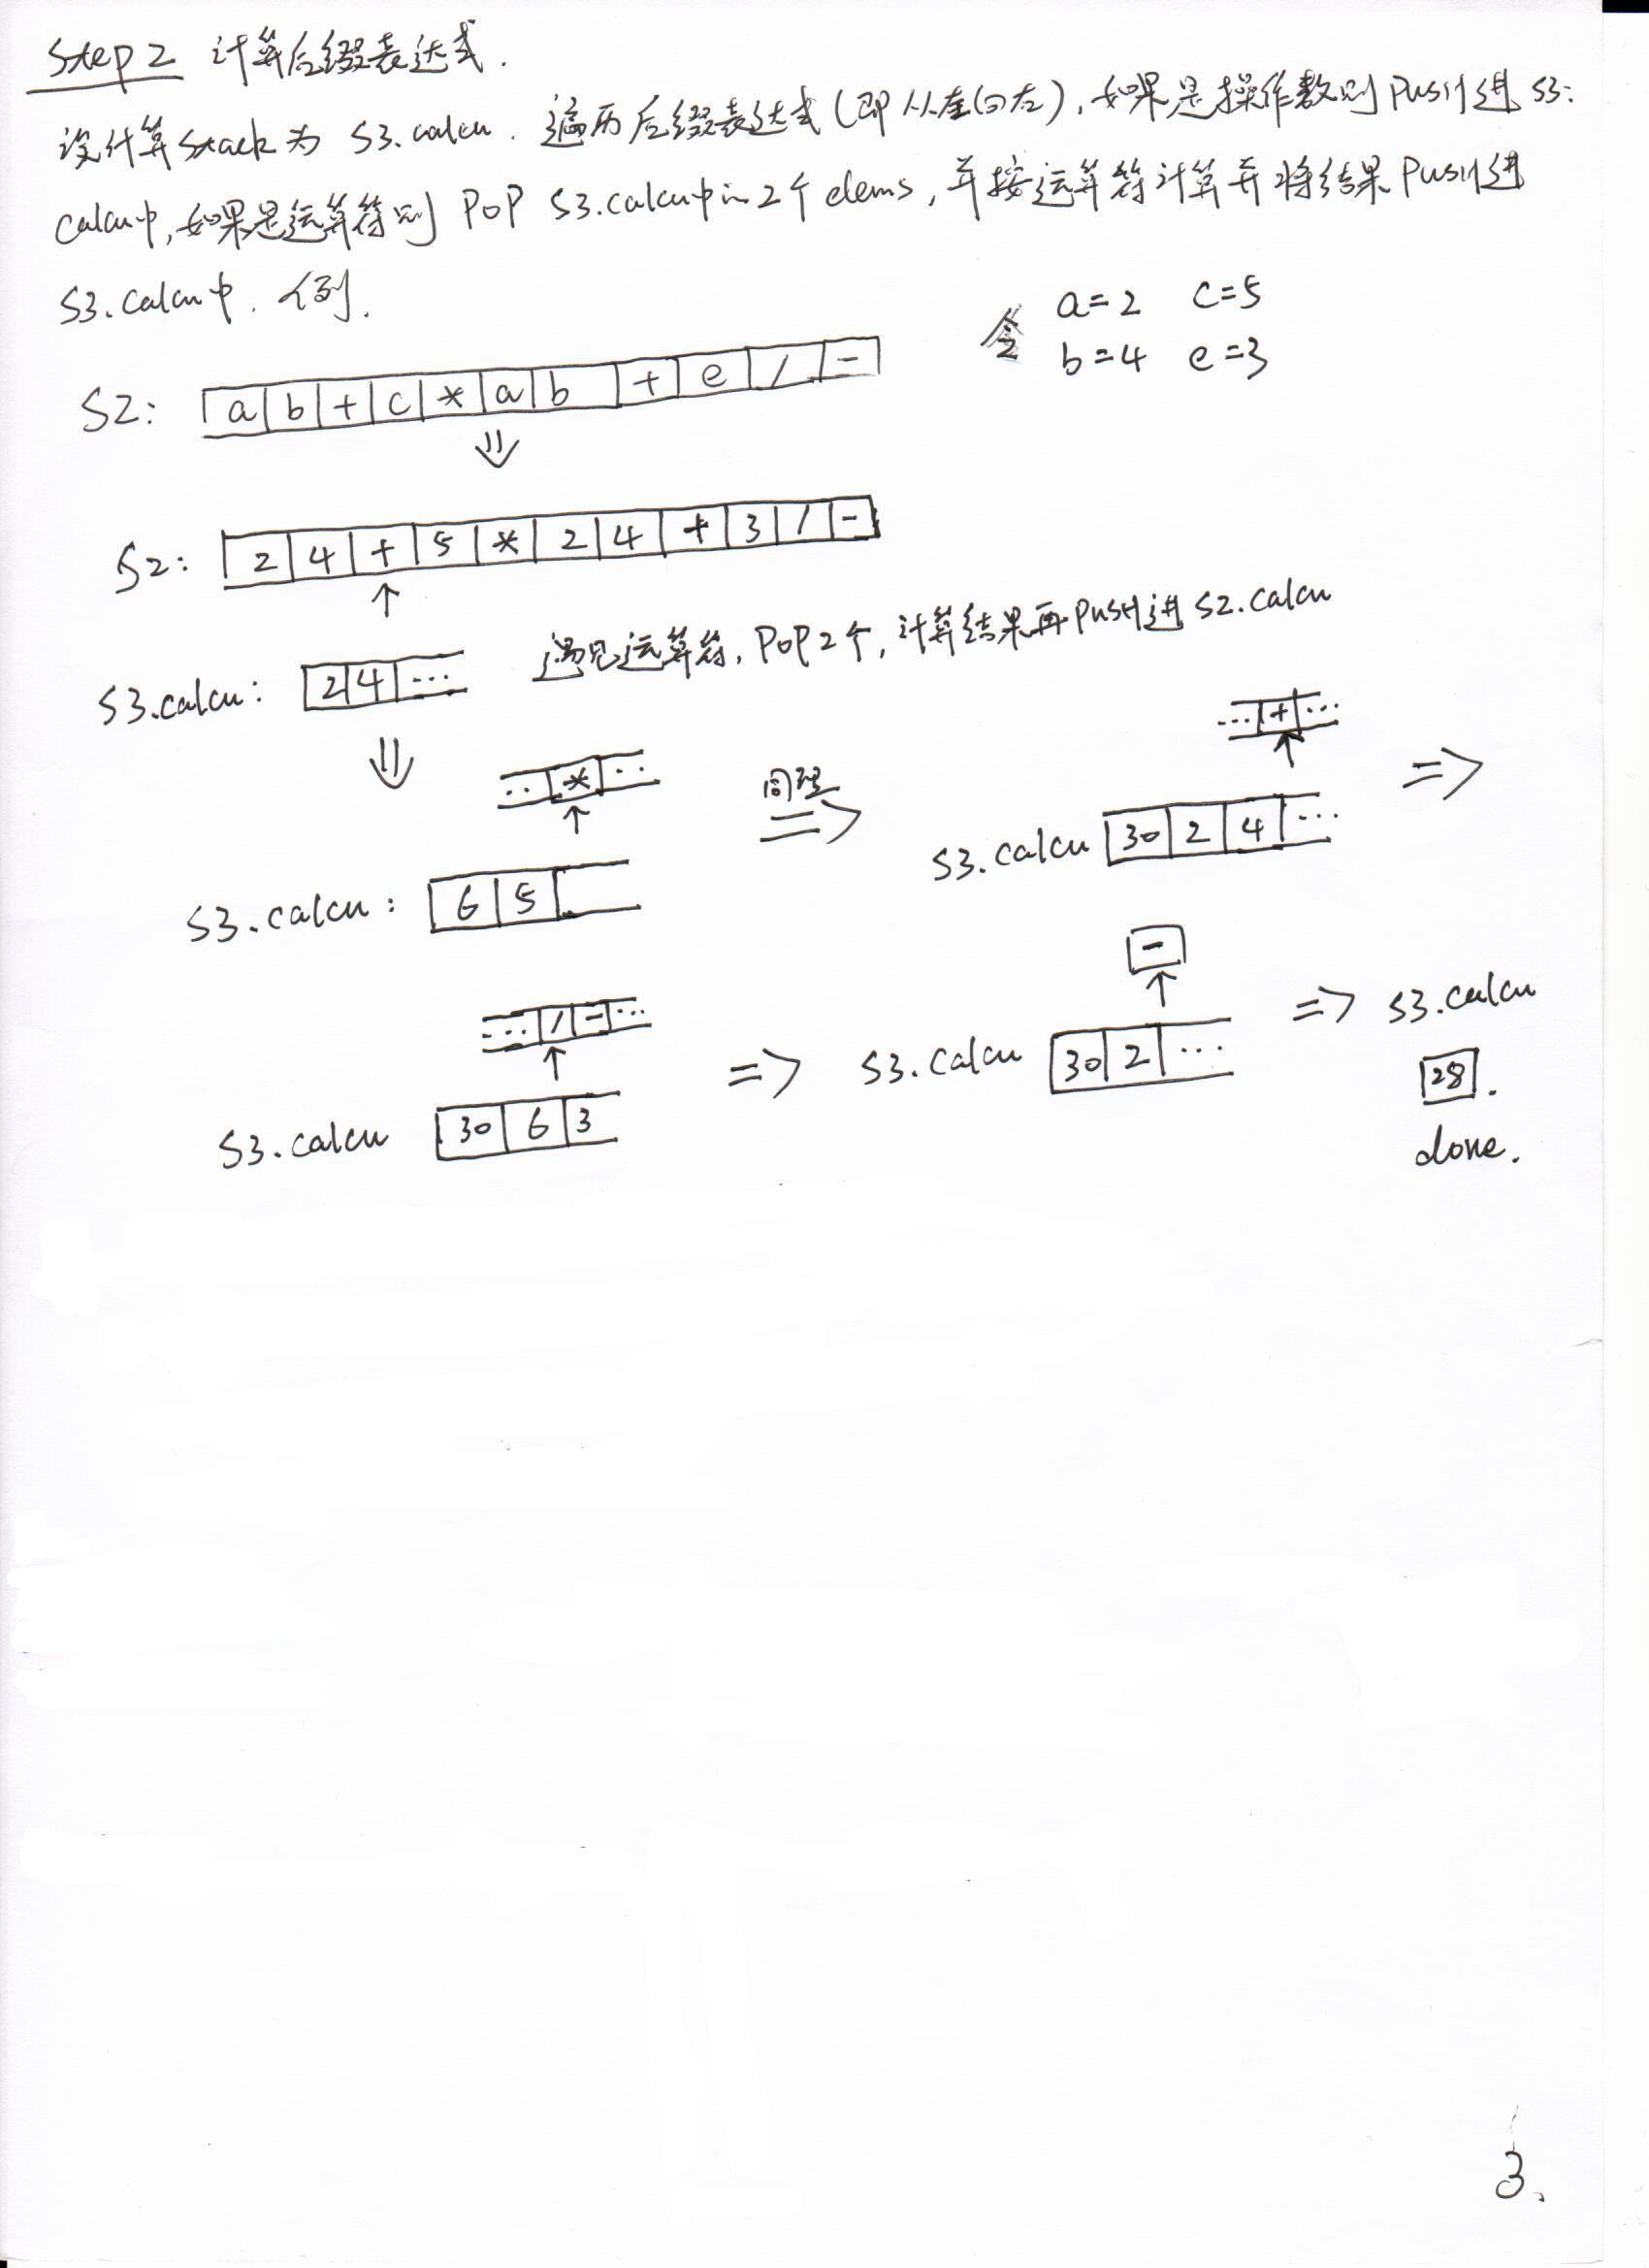 Step 2 计算后缀表达式.
设计算Stack为 S3.calcu. 遍历后缀表达式(即从左向右),如果是操作数则PUSH进 S3.
calcu中,如果是运算符则 POP S3.calcu中的2个elems,并按运算符计算并将结果PUSH进
S3.calcu中. 例.
令 a=2 c=5
b=4 e=3
S2: a b + c * a b + e / -
⇓
S2: 2 4 + 5 * 2 4 + 3 / -
↑
遇见运算符,POP2个,计算结果再PUSH进S2.calcu
S3.calcu: 2 4 ...
⇓
.. * ..
↑
S3.calcu: 6 5
同理
⇒
... + ...
↑
S3.calcu 30 2 4 ...
⇒
... / - ...
↑
S3.calcu 30 6 3
⇒
-
↑
S3.calcu 30 2 ...
⇒ S3.calcu
28.
done.
3.